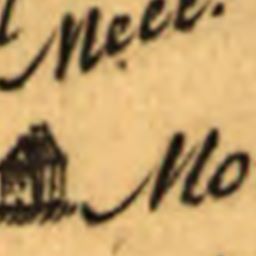 Meee.
Mo